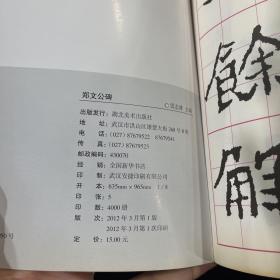 郑文公碑
出版发行：湖北美术出版社
地 址：武汉市洪山区雄楚大街268号B座
电 话：(027) 87679522 87679541
传 真：(027) 87679523
邮政编码：430070
经 销：全国新华书店
印 制：武汉安捷印刷有限公司
开 本：635mm×965mm 1/8
印 张：5
印 数：4000册
版 次：2012年3月第1版
2012年3月第1次印刷
定 价：15.00元
50号
餘
解